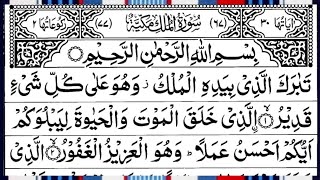 اٰیَاتُهَا ٣٠ (٦٧) سُوْرَةُ الْمُلْكِ مَكِّیَّةٌ (٧٧) رُكُوْعَاتُهَا ٢
بِسْمِ اللّٰهِ الرَّحْمٰنِ الرَّحِیْمِ
تَبٰرَكَ الَّذِیْ بِیَدِهِ الْمُلْكُ ز وَهُوَ عَلٰی كُلِّ شَیْءٍ
قَدِیْرُ ۝١ اِۨلَّذِیْ خَلَقَ الْمَوْتَ وَالْحَیٰوةَ لِیَبْلُوَكُمْ
اَیُّكُمْ اَحْسَنُ عَمَلًا ؕ وَهُوَ الْعَزِیْزُ الْغَفُوْرُ ۝٢ الَّذِیْ